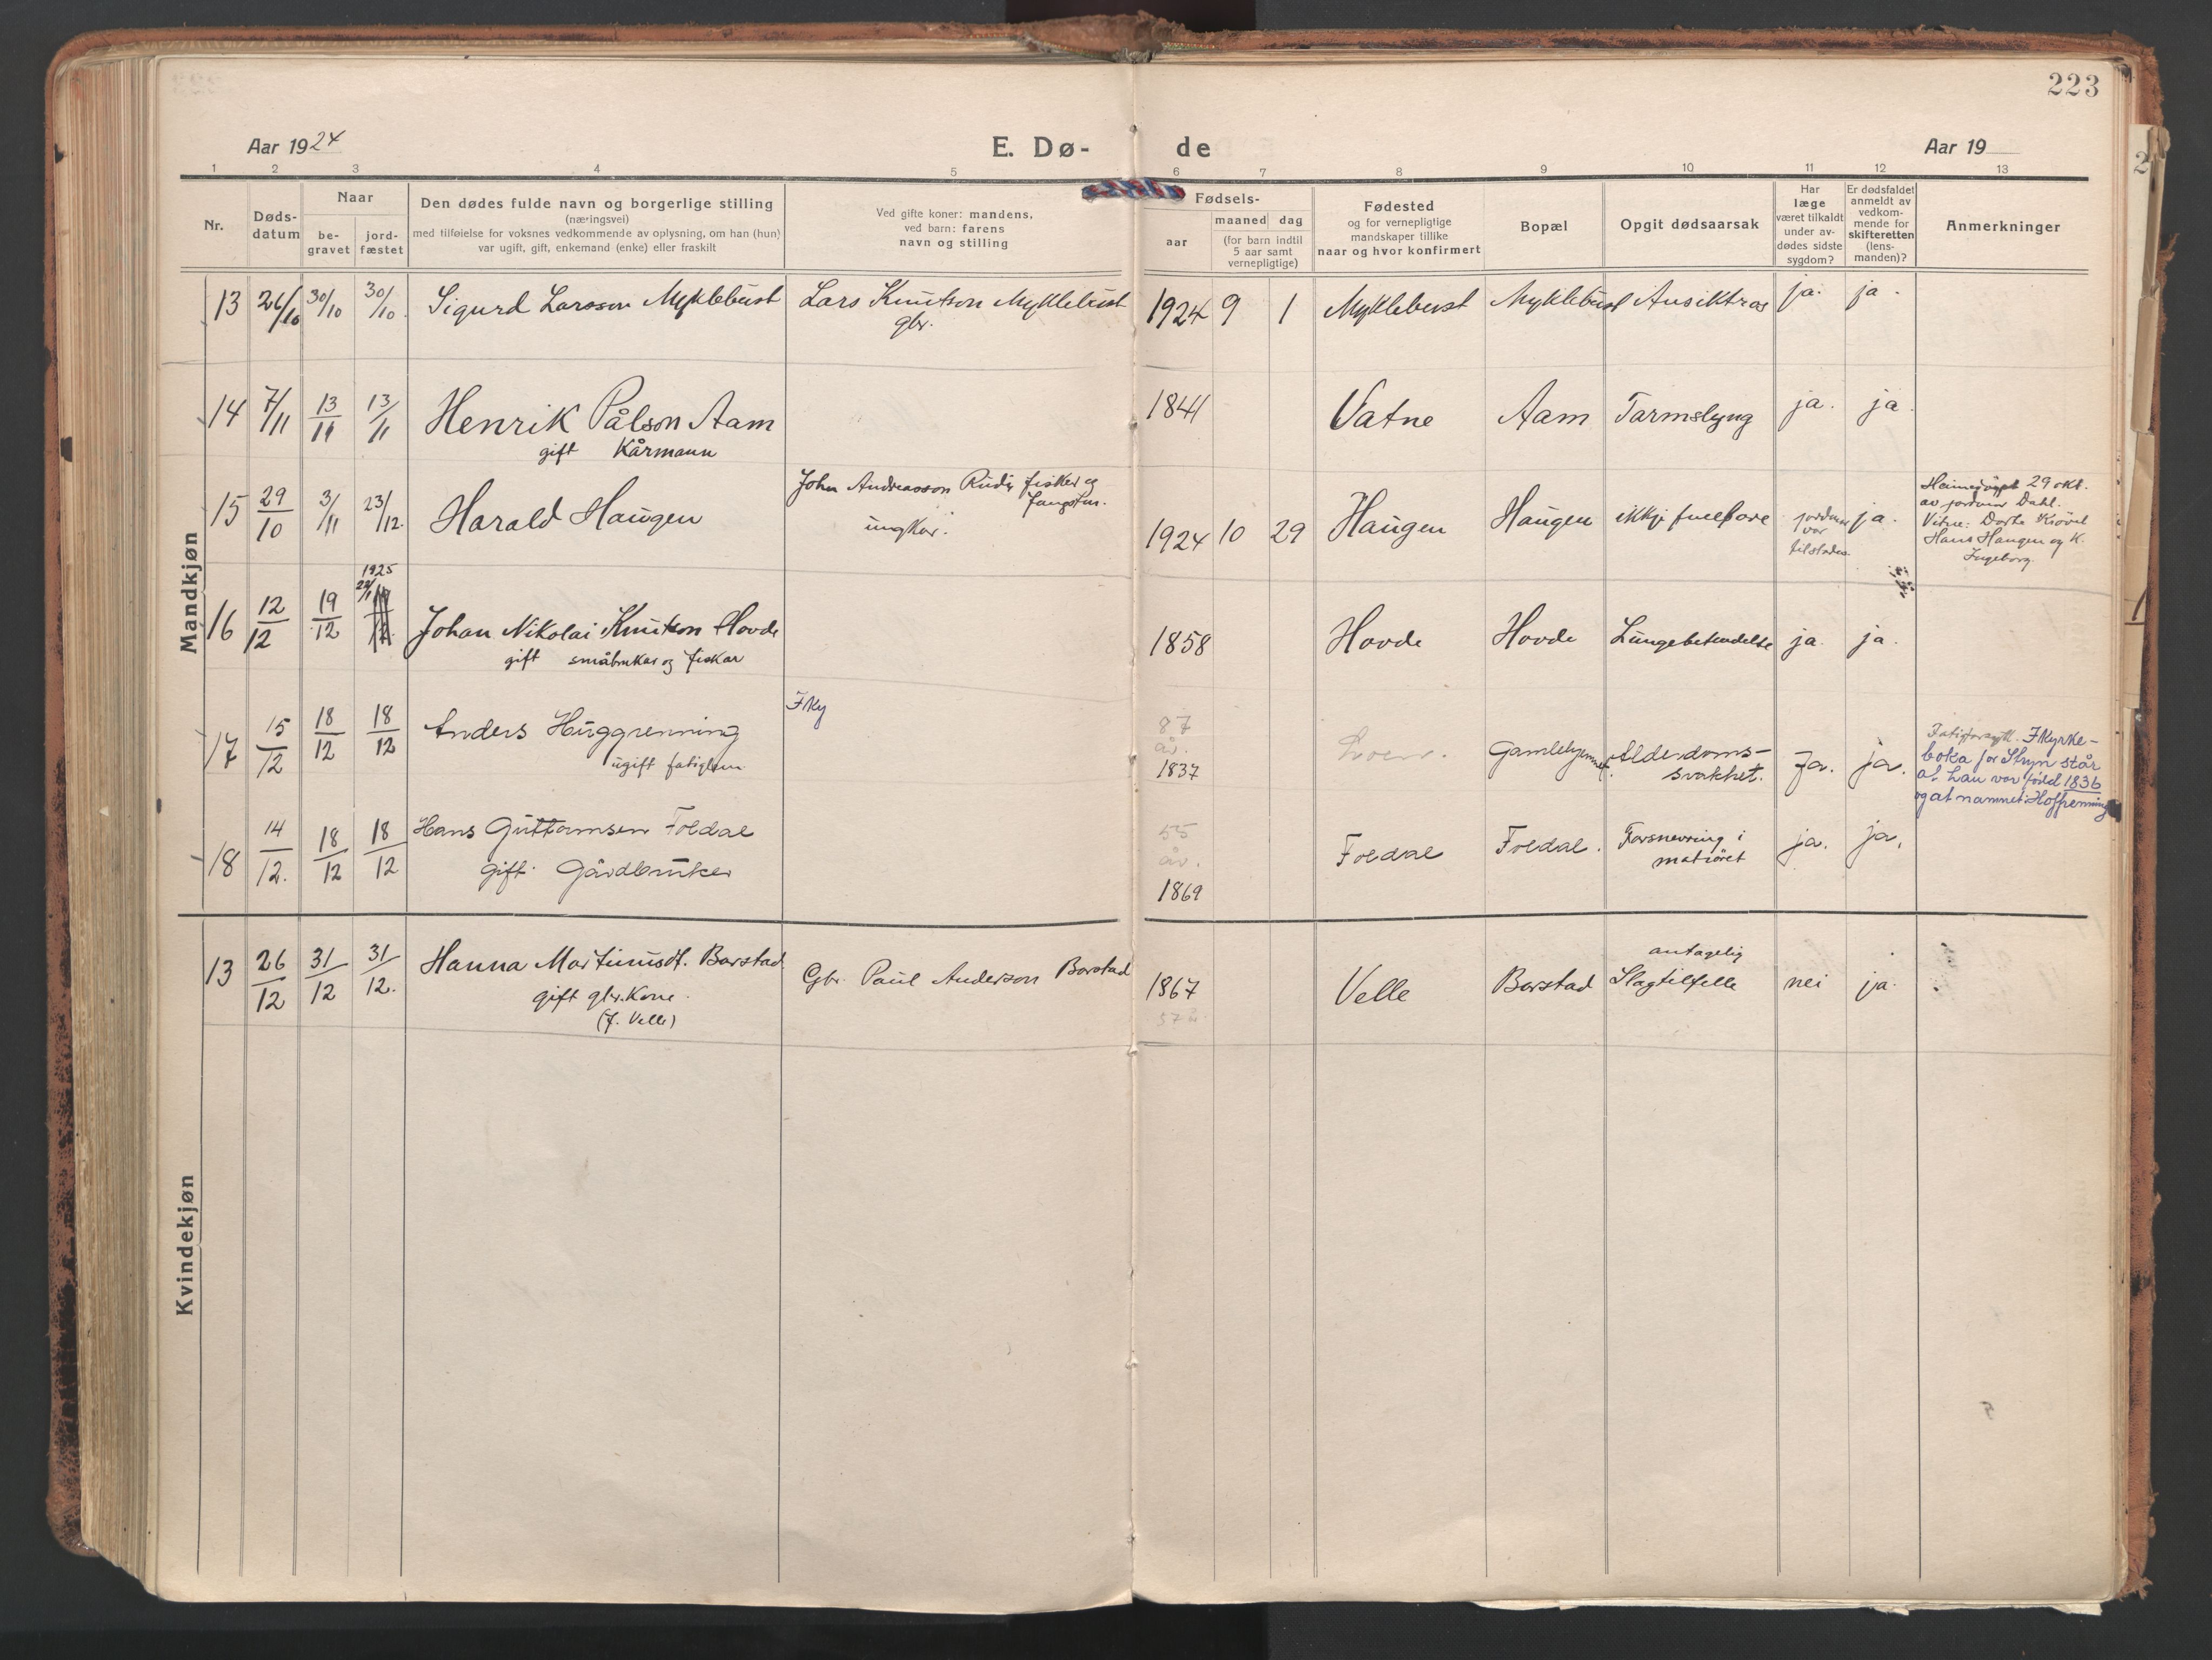 223
Aar 1924
E. Dø-
de
Aar 19
1 2 3 4 5 6 7 8 9 10 11 12 13
Nr.
Døds-
datum
Naar
be-
gravet
jord-
fæstet
Den dødes fulde navn og borgerlige stilling
(næringsvei)
med tilføielse for voksnes vedkommende av oplysning, om han (hun)
var ugift, gift, enkemand (enke) eller fraskilt
Ved gifte koner: mandens,
ved barn: farens
navn og stilling
Fødsels-
aar
maaned dag
(for barn indtil
5 aar samt
vernepligtige)
Fødested
og for vernepligtige
mandskaper tillike
naar og hvor konfirmert
Bopæl
Opgit dødsaarsak
Har
læge
været tilkaldt
under av-
dødes sidste
sygdom?
Er dødsfaldet
anmeldt av
vedkom-
mende for
skifteretten
(lens-
manden)?
Anmerkninger
Mandkjøn
13 26/10 30/10 30/10. Sigurd Larsson Myklebust Lars Knutson Myklebust 1924 9 1 Myklebust Myklebust Ansiktros ja. ja.
gbr.
14 7/11 13/11 13/11 Henrik Pålson Aam 1841 Vatne Aam Tarmslyng ja. ja.
gift Kårmann
15 29/10 3/11 23/12. Harald Haugen
John Andreasson Rudi, fisker og
fangstm.
ungkar.
1924 10 29 Haugen Haugen ikkje fullbore
jordmor
var
tilstades.
ja.
Heimedøypt 29 okt.
av jordmor Dahl.
Vitne: Dorte Krövel
Hans Haugen og K.
Ingeborg.
1925
16 12/12 19/12 Johan Nikolai Knutson Hovde 1858 Hovde Hovde Lungebetendelse ja. ja.
gift småbrukar og fiskar
17 15/12 18/12 18/12 Anders Huggrenning
ugift fatiglem
FKy
87
år.
1837
Loen.
Gamlehjemmet.
Alderdoms-
svakhet.
Ja. ja.
I Kyrke-
boka for Stryn står
at han var född 1836
og at namnet: Hoffrenning
18 14/12. 18/12 18/12 Hans Guttormsen Foldal
gift. Gårdbruker
55
år.
1869
Foldal Foldal.
Forsnevring i
matröret
ja. ja.
Kvindekjøn
13 26/12 31/12 31/12. Hanna Martinusdt. Barstad
gift gbr. Kone.
(f. Velle)
Gbr. Paul Anderson Barstad
1867
57 år.
Velle Barstad
antagelig
Slagtilfelle
nei ja.